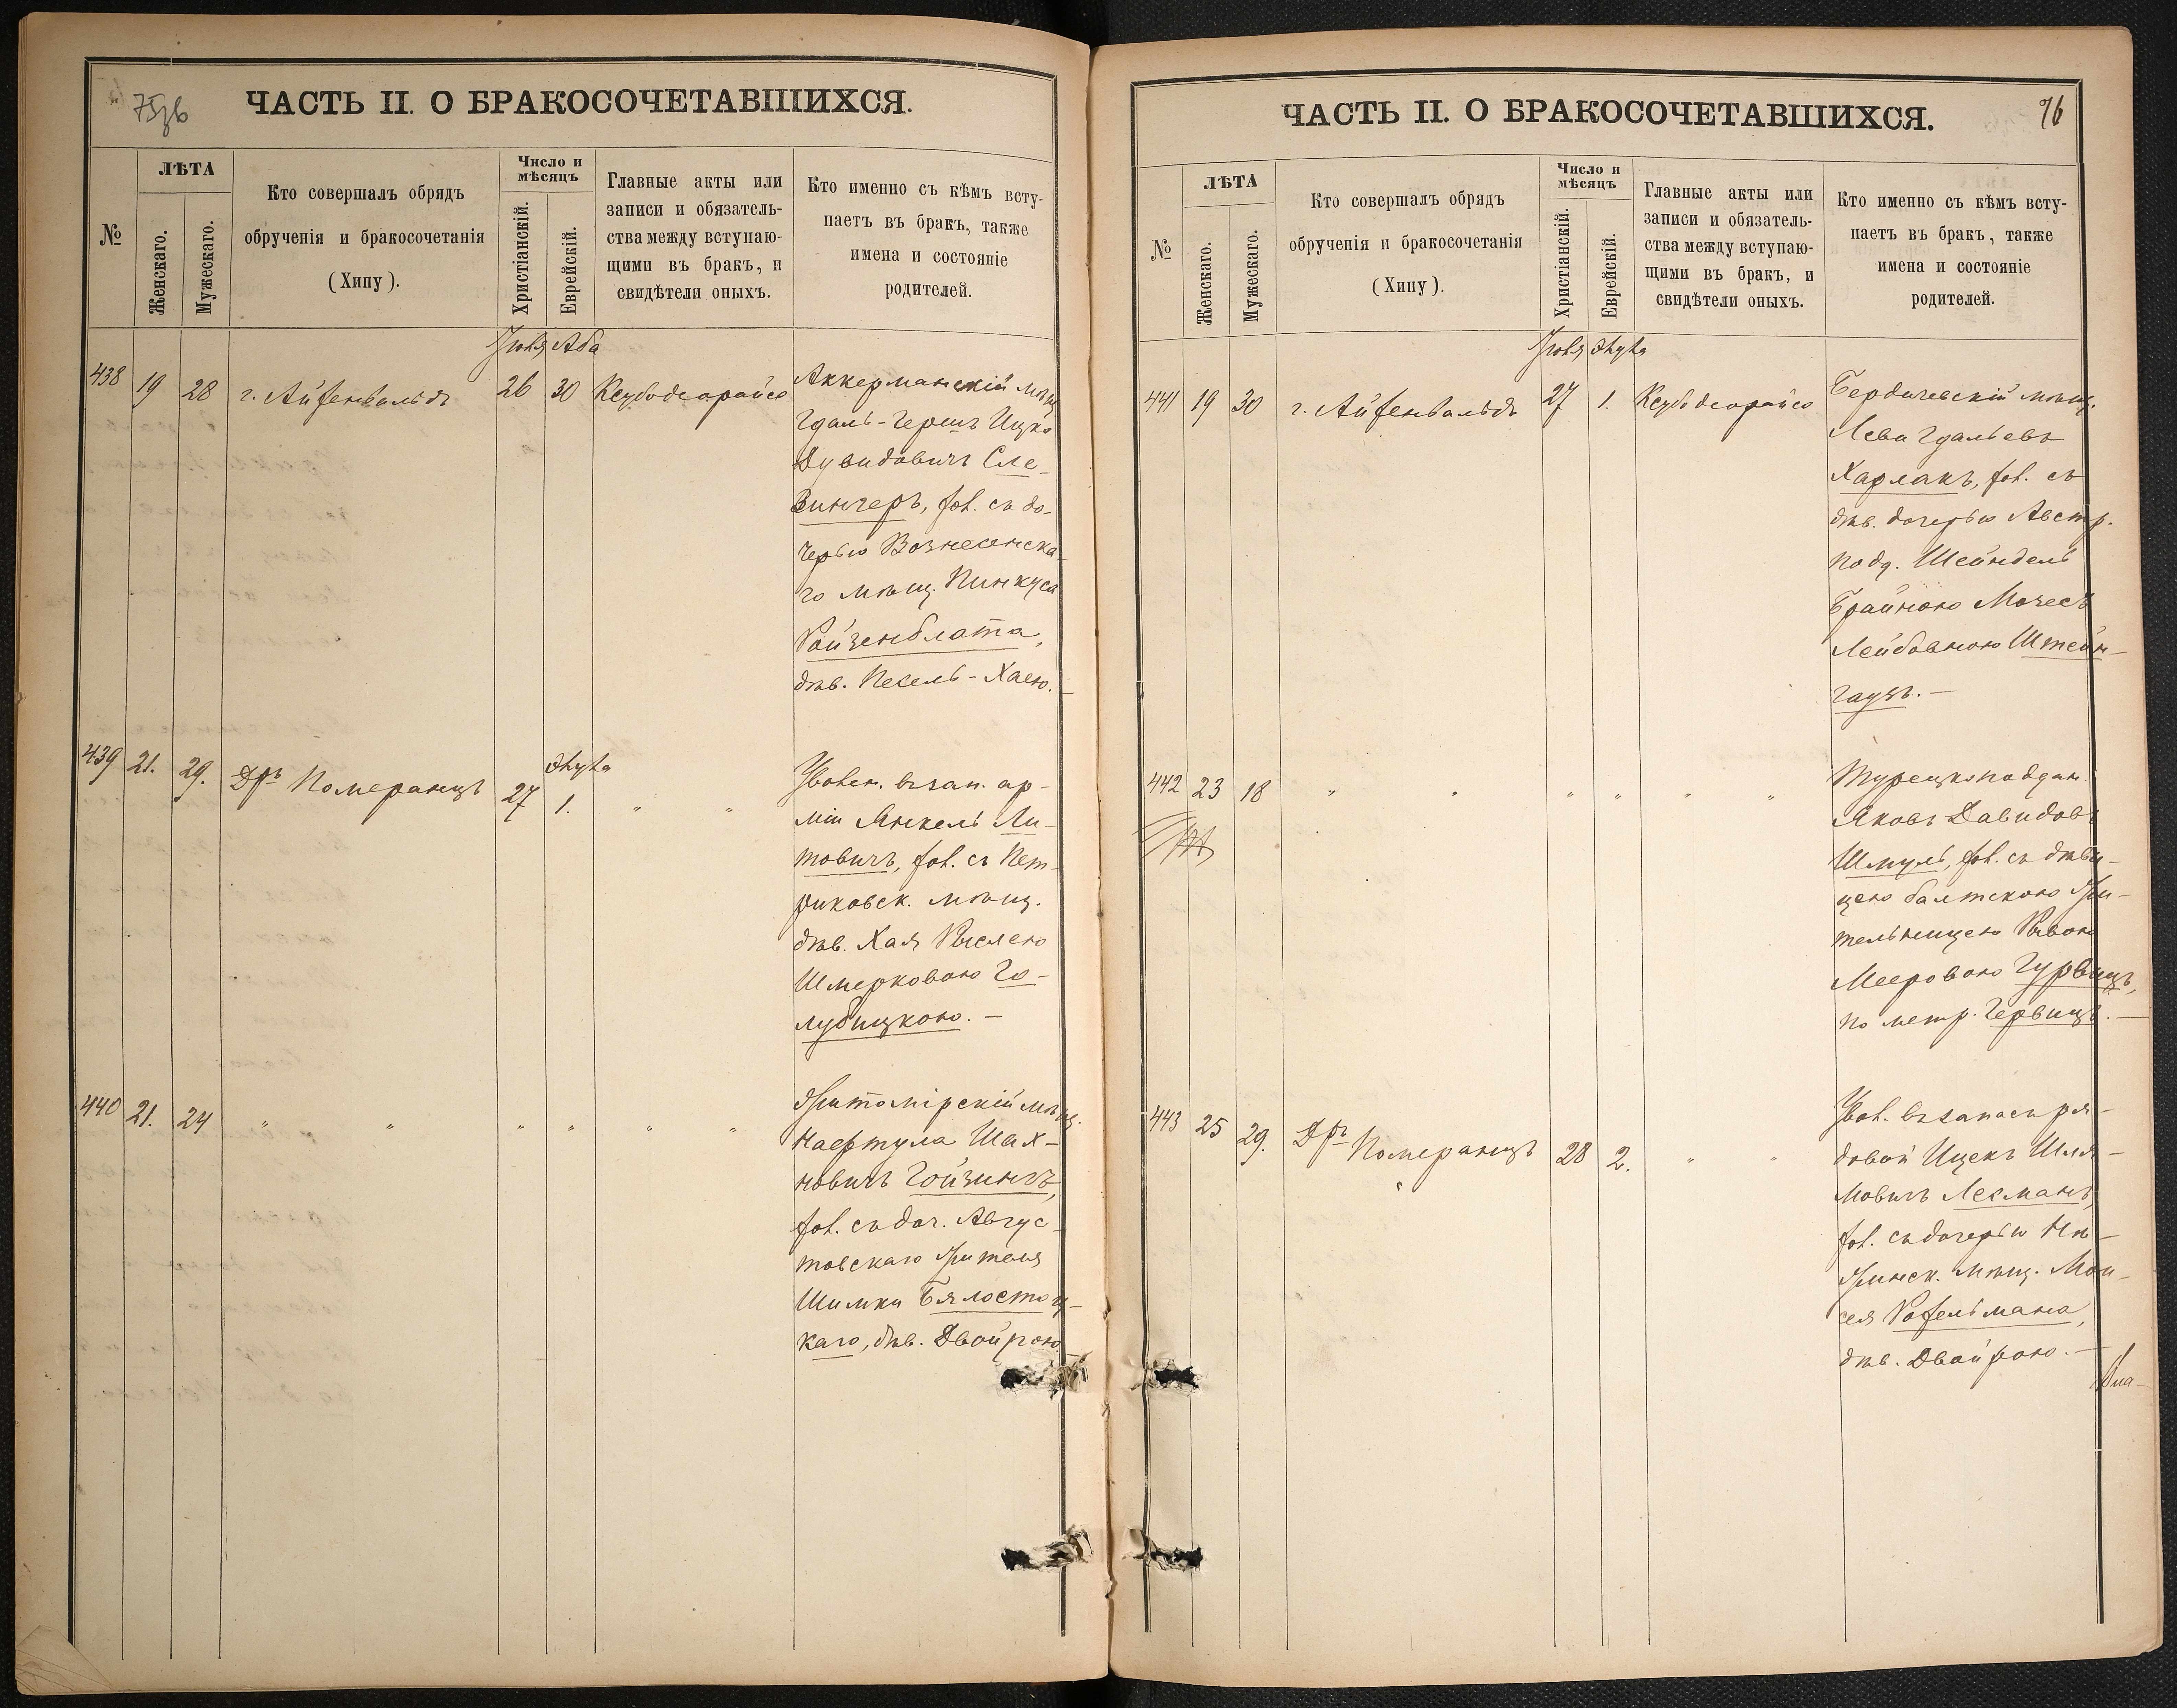 75зв
ЧАСТЬ II. О БРАКОСОЧЕТАВШИХСЯ.
№
ЛѢТА
Женскаго.
Мужескаго.
Кто совершалъ обрядъ
обрученія и бракосочетанія
(Хипу).
Число и
мѣсяцъ
Христіанскій.
Еврейскій.
Главные акты или
записи и обязатель-
ства между вступаю-
щими въ бракъ, и
свидѣтели оныхъ.
Кто именно съ кѣмъ всту-
паетъ въ бракъ, также
имена и состояніе
родителей.
Іюля Аба
438 19 28 г. Айзенвальдъ 26 30 Ксубодеорайсо
Аккерманскій мѣщ.
Гдаль-Гершъ Ицко
Дувидовичъ Сле-
зингеръ, хол. съ до-
черью Вознесенска-
го мѣщ. Пинкуса
Ройзенблата,
дѣв. Песель-Хаею.
Элула
439 21. 29. Дръ Померанцъ 27 1. " "
Уволен. въ зап. ар-
міи Янкель Ли-
товичъ, хол. съ Пет-
риковск. мѣщ.
дѣв. Хая Рислею
Шмерковою Го-
лубицкою. —
440 21. 24 " " " " " "
Житомірскій мѣщ.
Нафтула Шах-
новичъ Гойзингъ,
хол. съ доч. Авгус-
товскаго жителя
Шимки Бялостоц-
каго, дѣв. Двойрою
ЧАСТЬ II. О БРАКОСОЧЕТАВШИХСЯ.
76
№
ЛѢТА
Женскаго.
Мужескаго.
Кто совершалъ обрядъ
обрученія и бракосочетанія
(Хипу).
Число и
мѣсяцъ
Христіанскій.
Еврейскій.
Главные акты или
записи и обязатель-
ства между вступаю-
щими въ бракъ, и
свидѣтели оныхъ.
Кто именно съ кѣмъ всту-
паетъ въ бракъ, также
имена и состояніе
родителей.
Іюля Элула
441 19 30 г. Айзенвальдъ 27 1. Ксубодеорайсо
Бердичевскій мѣщ.
Лева Гдальевъ
Харлакъ, хол. съ
дѣв. дочерью Австр.
подд. Шейндель
Брайною Мозесъ
Лейбовною Штейн-
гаузъ. —
442 23 18 " " " " " "
Турецкоподдан.
Яковъ Давидовъ
Шмуль, хол. съ дѣви-
цею балтскою жи-
тельницею Ривою
Мееровою Гурвицъ,
по метр. Гервицъ. —
443 25 29. Дръ Померанцъ 28 2. " "
Увол. въ запасъ ря-
довой Ицекъ Шля-
мовичъ Лесманъ,
хол. съ дочерью Нѣ-
жинск. мѣщ. Мои-
сея Рофельмана,
дѣв. Двойрою. —